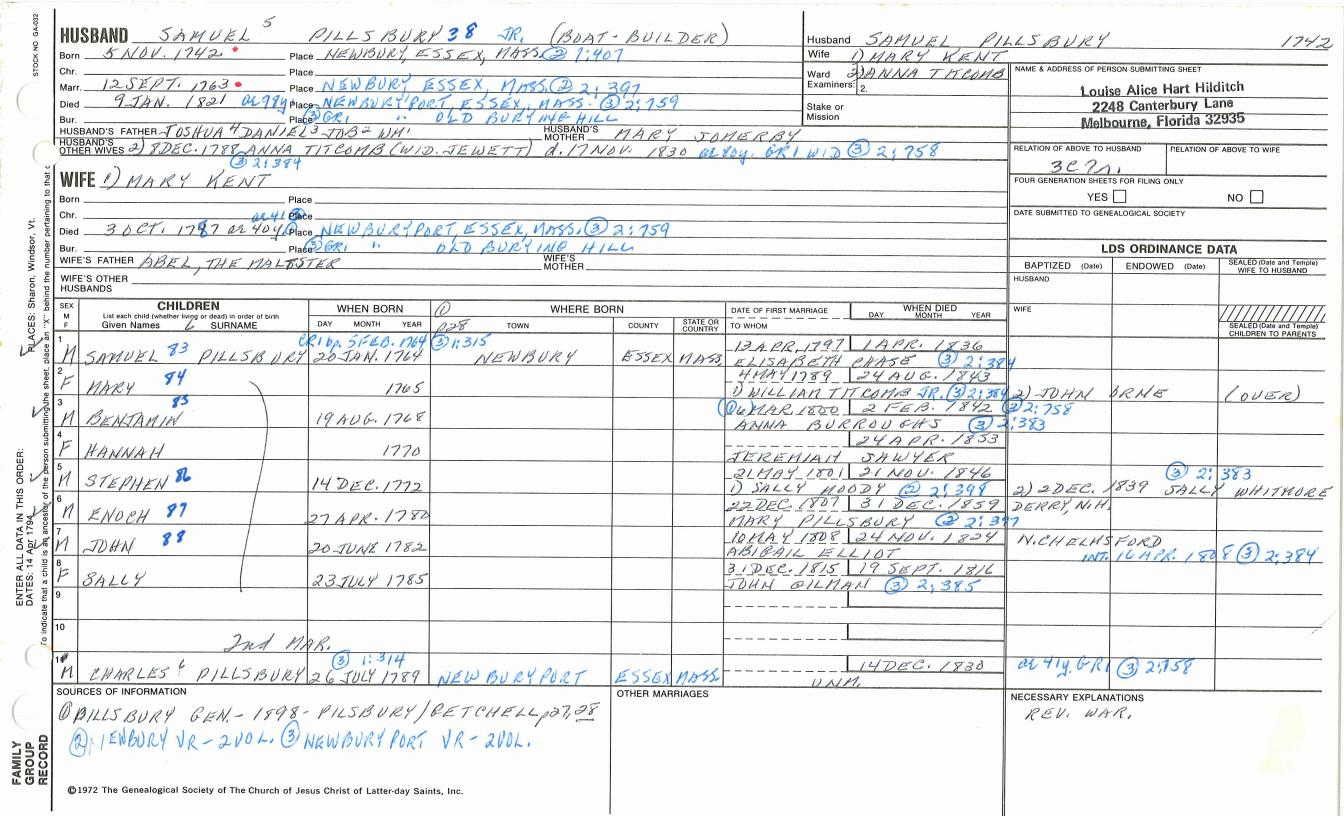 HUSBAND SAMUEL 5 PILLSBURY 38 JR. (BOAT-BUILDER)
Born 5 NOV. 1742 Place NEWBURY, ESSEX, MASS. ② 1:407
Chr. Place
Marr. 12 SEPT. 1763 Place NEWBURY ESSEX, MASS. ② 2:397
Died 9 JAN. 1821 Place NEWBURYPORT, ESSEX, MASS. ③ 2:759
Bur. Place GR1 " OLD BURYING HILL
HUSBAND'S FATHER JOSHUA 4 DANIEL 3 JOB 2 WM 1 HUSBAND'S MOTHER MARY JOMERBY
HUSBAND'S OTHER WIVES 2) 8 DEC. 1788 ANNA TITCOMB (WID. JEWETT) d. 17 NOV. 1830 ae 80y. GR1 WID ③ 2:758
③ 2:384
WIFE 1) MARY KENT
Born Place
Chr. Place
Died 3 OCT. 1787 ae 40y Place NEWBURYPORT, ESSEX, MASS. ③ 2:759
Bur. Place GR1 " OLD BURYING HILL
WIFE'S FATHER ABEL, THE MALTSTER WIFE'S MOTHER
WIFE'S OTHER HUSBANDS
Husband SAMUEL PILLSBURY 1742
Wife 1) MARY KENT
Ward 2) ANNA TITCOMB
Examiners: 2.
Stake or Mission
NAME & ADDRESS OF PERSON SUBMITTING SHEET
Louise Alice Hart Hilditch
2248 Canterbury Lane
Melbourne, Florida 32935
RELATION OF ABOVE TO HUSBAND RELATION OF ABOVE TO WIFE
3C7r.
FOUR GENERATION SHEETS FOR FILING ONLY
YES NO
DATE SUBMITTED TO GENEALOGICAL SOCIETY
LDS ORDINANCE DATA
BAPTIZED (Date) ENDOWED (Date) SEALED (Date and Temple) WIFE TO HUSBAND
HUSBAND
WIFE
SEALED (Date and Temple) CHILDREN TO PARENTS
SEX M F CHILDREN WHEN BORN ① WHERE BORN DATE OF FIRST MARRIAGE WHEN DIED
List each child (whether living or dead) in order of birth
Given Names 6 SURNAME DAY MONTH YEAR p28 TOWN COUNTY STATE OR COUNTRY TO WHOM DAY MONTH YEAR
CR1 bp. 5 FEB. 1764 ③ 1:315 13 APR, 1797 1 APR. 1836
1 M SAMUEL 83 PILLSBURY 20 JAN. 1764 NEWBURY ESSEX MASS. ELISABETH CHASE ③ 2:384
4 MAY 1789 24 AUG. 1843
2 F MARY 84 1765 1) WILLIAM TITCOMB JR. ③ 2:384 2) JOHN ORNE (OVER)
6 MAR. 1800 2 FEB. 1842 ② 2:758
3 M BENJAMIN 85 19 AUG. 1768 ANNA BURROUGHS ③ 2:383
24 APR. 1853
4 F HANNAH 1770 JEREMIAH SAWYER
21 MAY 1801 21 NOV. 1846 ③ 2:383
5 M STEPHEN 86 14 DEC. 1772 1) SALLY MOODY ② 2:398 2) 2 DEC. 1839 SALLY WHITMORE
22 DEC. 1807 31 DEC. 1859 DERRY, N.H.
6 M ENOCH 87 27 APR. 1780 MARY PILLSBURY ② 2:397
10 MAY 1808 24 NOV. 1824 N. CHELMSFORD
7 M JOHN 88 20 JUNE 1782 ABIGAIL ELLIOT INT. 16 APR. 1808 ③ 2:384
31 DEC. 1815 19 SEPT. 1816
8 F SALLY 23 JULY 1785 JOHN GILMAN ③ 2:385
9
10
2nd MAR.
③ 1:314 14 DEC. 1830 ae 41y. GR1 ③ 2:758
M CHARLES 6 PILLSBURY 26 JULY 1789 NEWBURYPORT ESSEX MASS. UNM.
SOURCES OF INFORMATION
① PILLSBURY GEN.- 1898- PILSBURY/GETCHELL p27,28
② NEWBURY VR - 2 VOL. ③ NEWBURYPORT VR - 2 VOL.
OTHER MARRIAGES
NECESSARY EXPLANATIONS
REV. WAR.
©1972 The Genealogical Society of The Church of Jesus Christ of Latter-day Saints, Inc.
STOCK NO. GA-032
ENTER ALL DATA IN THIS ORDER:
DATES: 14 Apr 1794
PLACES: Sharon, Windsor, Vt.
To indicate that a child is an ancestor of the person submitting the sheet, place an "X" behind the number pertaining to that
FAMILY GROUP RECORD